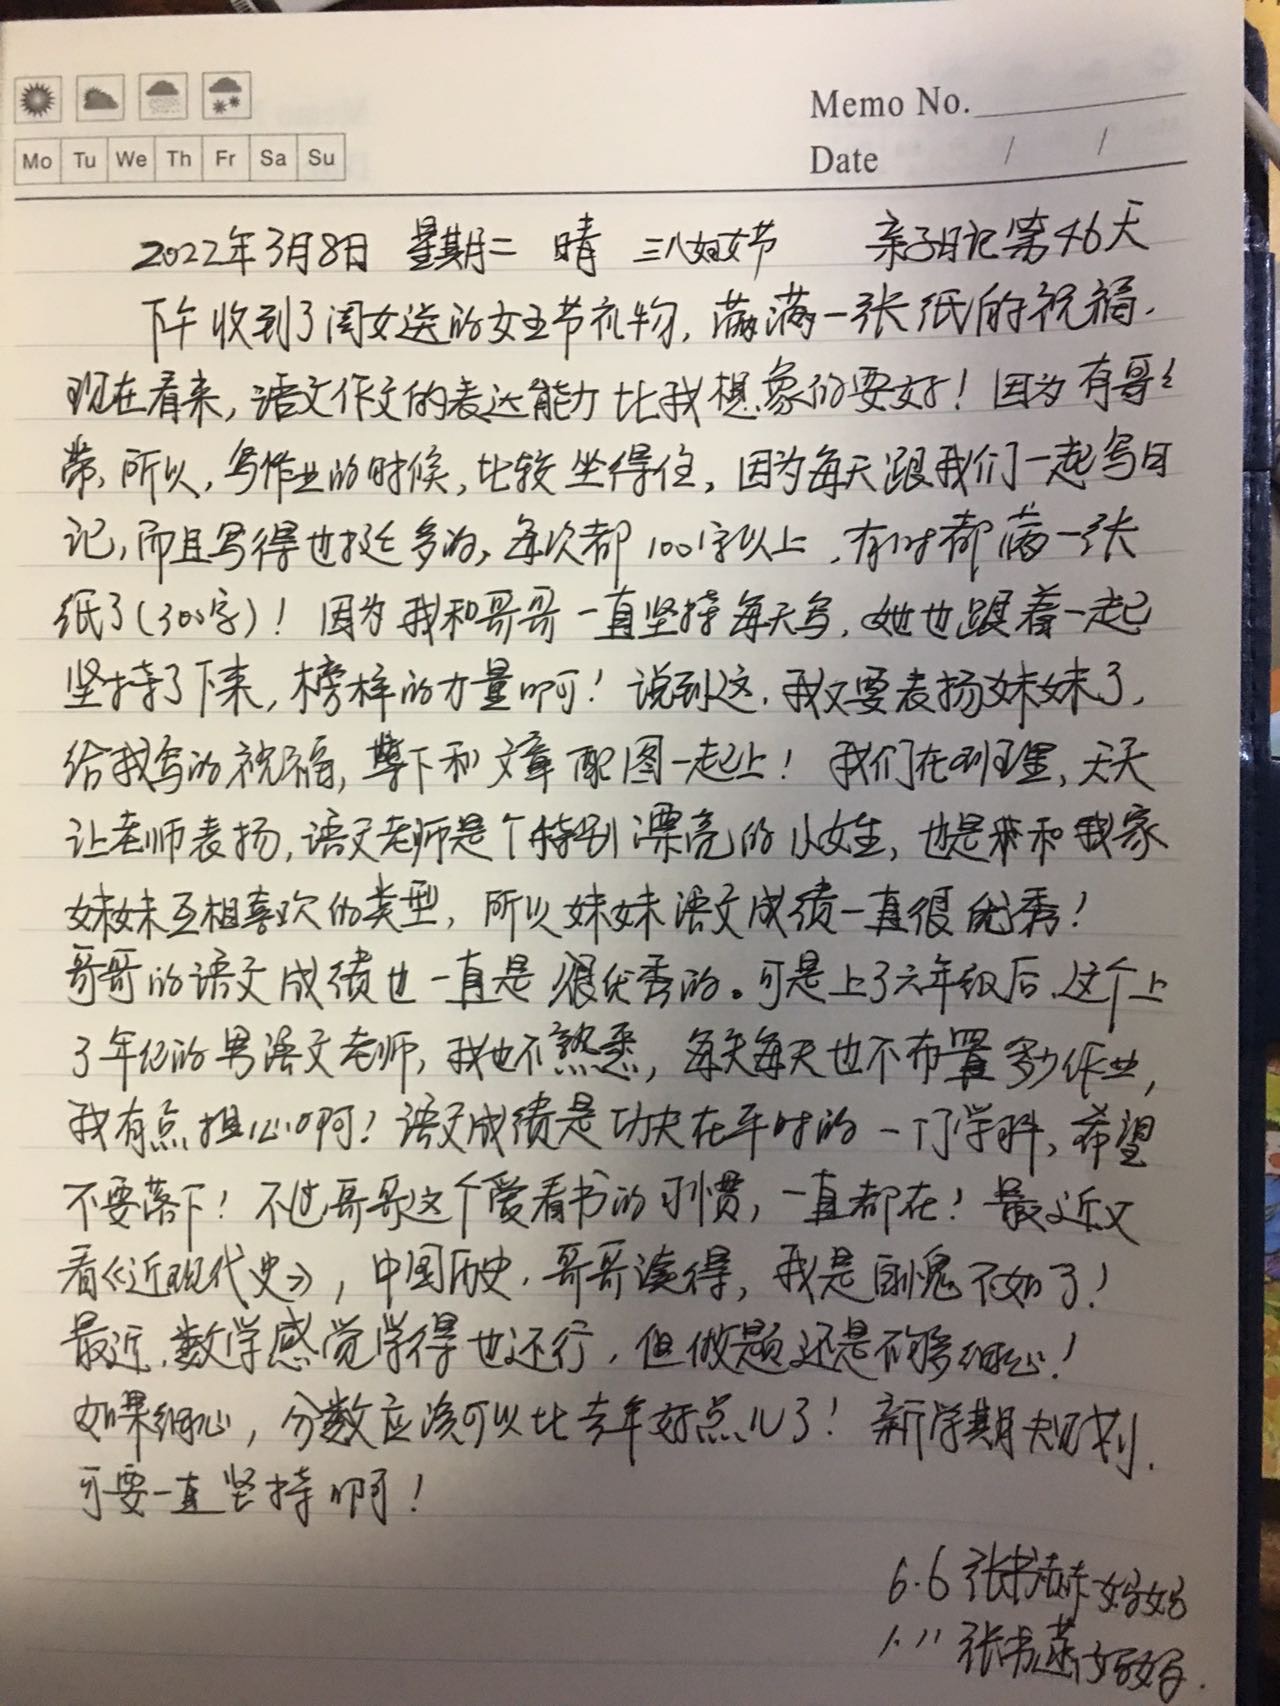 Memo No.
Mo Tu We Th Fr Sa Su
Date / /
2022年3月8日 星期二 晴 三八妇女节 亲子日记第46天
下午收到了闺女送的女王节礼物,满满一张纸的祝福.
现在看来,语文作文的表达能力比我想象的要好!因为有哥々
带,所以,写作业的时候,比较坐得住,因为每天跟我们一起写日
记,而且写得也挺多的,每次都100字以上,有时都满一张
纸了(300字)!因为我和哥哥一直坚持每天写,她也跟着一起
坚持了下来,榜样的力量啊!说到这,我又要表扬妹妹了,
给我写的祝福,掌下和文章配图一起上!我们在班里,天天
让老师表扬,语文老师是个特别漂亮的小女生,也是和我家
妹妹互相喜欢的类型,所以妹妹语文成绩一直很优秀!
哥哥的语文成绩也一直是很优秀的。可是上了六年级后,这个上
了年纪的男语文老师,我也不熟悉,每天每天也不布置多少作业,
我有点担心啊!语文成绩是功夫在平时的一门学科,希望
不要落下!不过哥哥这个爱看书的习惯,一直都在!最近又
看《近现代史》,中国历史,哥哥读得,我是自愧不如了!
最近,数学感觉学得也还行,但做题还是不够细心!
如果细心,分数应该可以比去年好点儿了!新学期规划,
可要一直坚持啊!
6.6 张书赫妈妈
1.11 张书菡妈妈.